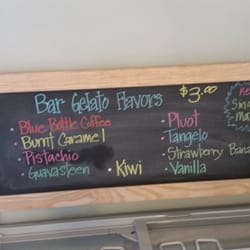 Bar Gelato Flavors $3.00
• Blue Bottle Coffee
• Burnt Caramel
• Pistachio
• Guavasteen
• Kiwi
• Pluot
• Tangelo
• Strawberry Bana
• Vanilla
ne
Sm
ma